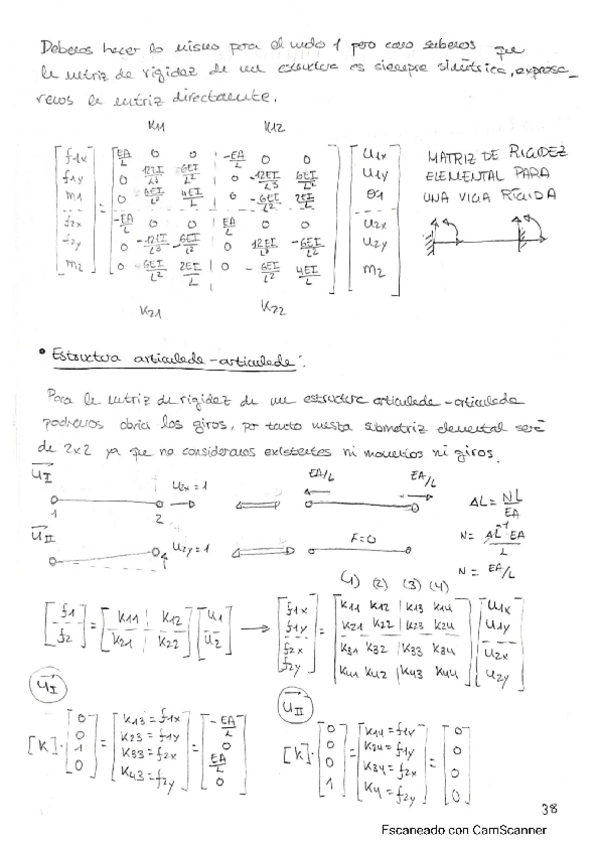 Debemos hacer lo mismo para el nudo 1 pero como sabemos que
la matriz de rigidez de una estructura es siempre simétrica, expresa_
remos la matriz directamente.
K11 K12
f1x EA/L 0 0 -EA/L 0 0 u1x
f1y 0 12EI/L³ 6EI/L² 0 -12EI/L³ 6EI/L² u1y
m1 = 0 6EI/L² 4EI/L 0 -6EI/L² 2EI/L θ1
f2x -EA/L 0 0 EA/L 0 0 u2x
f2y 0 -12EI/L³ -6EI/L² 0 12EI/L³ -6EI/L² u2y
m2 0 6EI/L² 2EI/L 0 -6EI/L² 4EI/L m2
K21 K22
MATRIZ DE RIGIDEZ
ELEMENTAL PARA
UNA VIGA RÍGIDA
• Estructura articulada-articulada:
Para la matriz de rigidez de una estructura articulada-articulada
podremos obviar los giros, por tanto nuestra submatriz elemental será
de 2x2 ya que no consideramos existentes ni momentos ni giros.
uI
1 2 u2x=1 EA/L EA/L
ΔL = NL/EA
uII
u2y=1 F=0
N = ΔL·EA/L
N = EA/L
(1) (2) (3) (4)
f1 = K11 K12 u1
f2 K21 K22 u2
f1x K11 K12 K13 K14 u1x
f1y = K21 K22 K23 K24 u1y
f2x K31 K32 K33 K34 u2x
f2y K41 K42 K43 K44 u2y
uI
[K]· 0 0 1 0 = K13 = f1x K23 = f1y K33 = f2x K43 = f2y = -EA/L 0 EA/L 0
uII
[K]· 0 0 0 1 = K14 = f1x K24 = f1y K34 = f2x K4 = f2y = 0 0 0 0
38
Escaneado con CamScanner